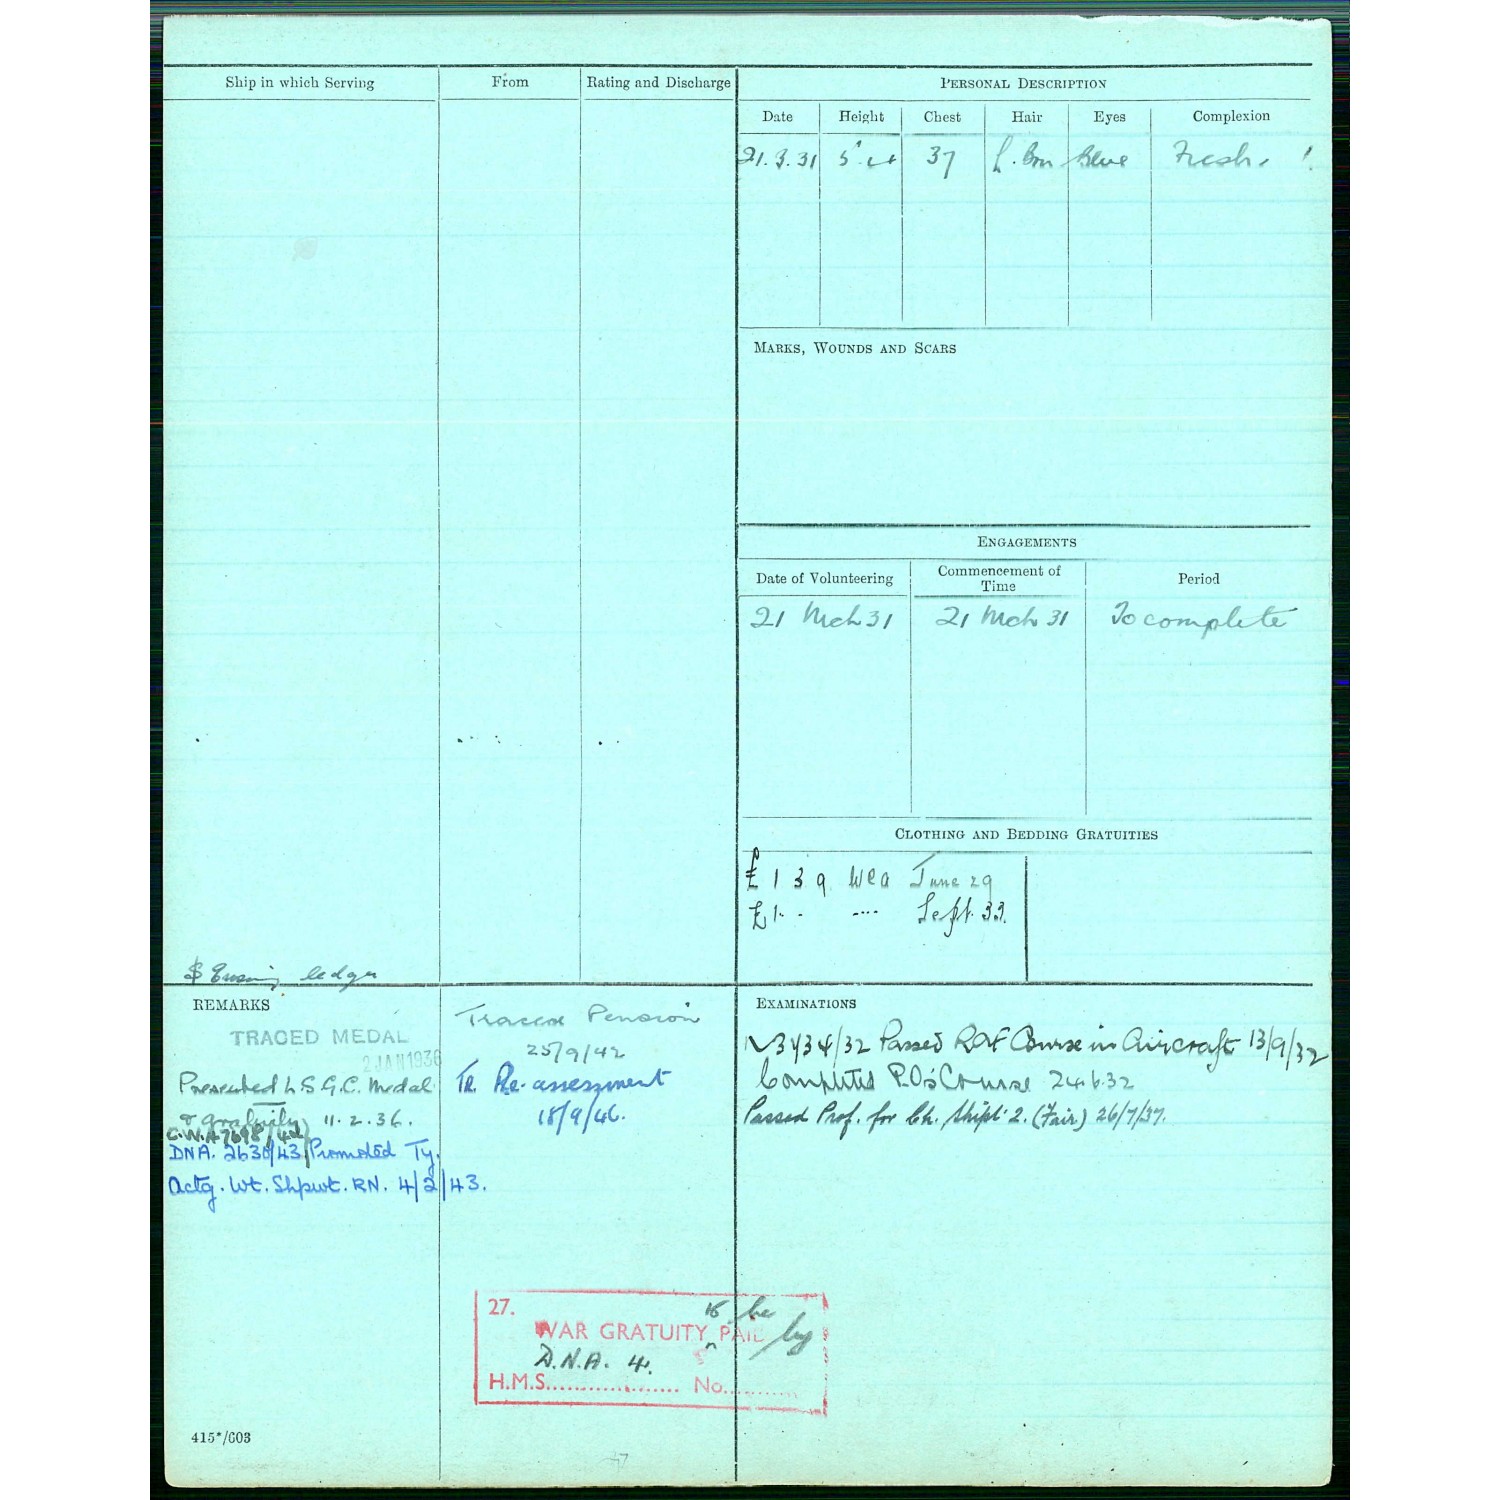 Ship in which Serving From Rating and Discharge
PERSONAL DESCRIPTION
Date Height Chest Hair Eyes Complexion
21.3.31 37 Blue Fresh.
MARKS, WOUNDS AND SCARS
ENGAGEMENTS
Date of Volunteering Commencement of Time Period
21 Mch 31 21 Mch 31 To complete
CLOTHING AND BEDDING GRATUITIES
£ 1 3 9 June 29
£1 - - Sept. 33.
ledger
REMARKS
TRACED MEDAL
2 JAN 1936
Presented L S G.C. Medal
& gratuity 11.2.36.
C.W.A 7698/42
DNA. 2630/43 Promoted Ty.
Actg. Wt. Shpwt. RN. 4/2/43.
Traced Pension
25/9/42
Tr. Re-assessment
18/9/46.
EXAMINATIONS
3434/32 Passed RAF Course in Aircraft 13/9/32
Completed P.O's Course 24.6.32
Passed Prof. for Ch. Shipt. 2. (Fair) 26/7/37.
27.
to be
WAR GRATUITY PAID by
D.N.A. 4.
H.M.S.................... No............
415*/603